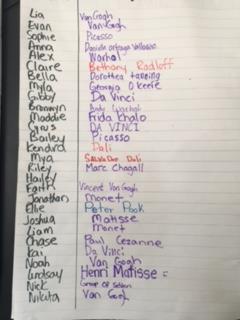 Lia Van Gogh
Evan Van Gogh
Sophie Picasso
Anna Daniela ortega
Alex Warhol
Claire Bethany Radloff
Bella Dorothea tanning
Myla Georgia O keefe
Gibby Da Vinci
Bronwyn Andy Warhol
Maddie Frida Khalo
Gus DA VINCI
Bailey Picasso
Kendra Dali
Mya Salvador Dali
Riley Marc Chagall
Hailey
Faith Vincent Van Gogh
Jonathan Monet
Ellie Peter Pook
Joshua Matisse
Liam Monet
Chase Paul Cezanne
Kai Da Vinci
Noah Van Gogh
Lindsay Henri Matisse
Nick Group of Seven
Nikita Van Gogh